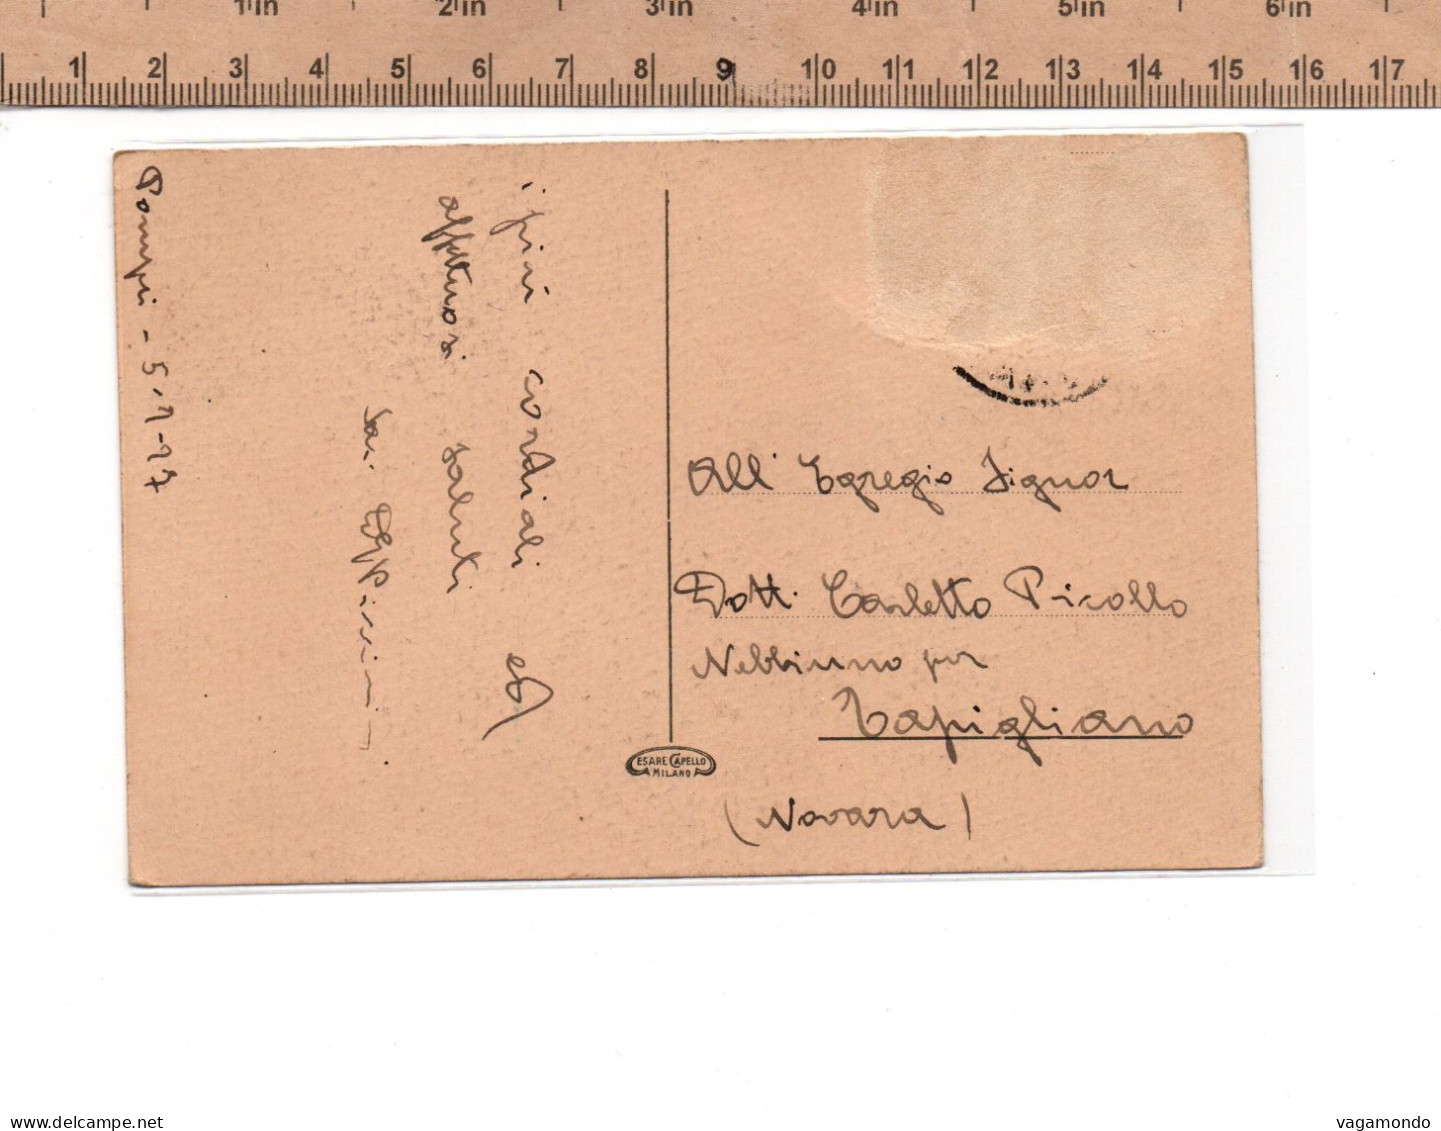 1in 2in 3in 4in 5in 6in
1 2 3 4 5 6 7 8 9 10 11 12 13 14 15 16 17
Pompei - 5-1-27
i più cordiali ed
affettuosi saluti
All' Egregio Signor
Dott. Carletto Picollo
Nebbiuno per
Tapigliano
(Novara)
ESARE CAPELLO
MILANO
delcampe.net
vagamondo